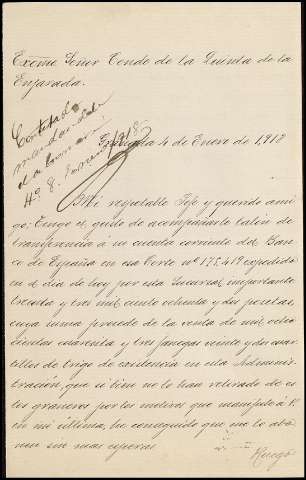 Excmo Señor Conde de la Quinta de la
Enjarada.
Contestado
mandandole
Granada 4 de Enero de 1,918
Mi respetable Jefe y querido ami-
go; Tengo el gusto de acompañarle talón de
transferencia á su cuenta corriente del Ban-
co de España en esa Corte nº 175,419 expedido
en el dia de hoy por esta Sucursal importante
treinta y tres mil ciento ochenta y dos pesetas,
cuya suma procede de la venta de mil ocho-
cientas cuarenta y tres fanegas veinte y dos cuar-
tillos de trigo de existencia en esta Adminis-
tración, que si bien no lo han retirado de es-
tos graneros por los motivos que manifesté á V.
en mi ultima, he conseguido que me lo abo-
nen sin mas esperar.
Ruego